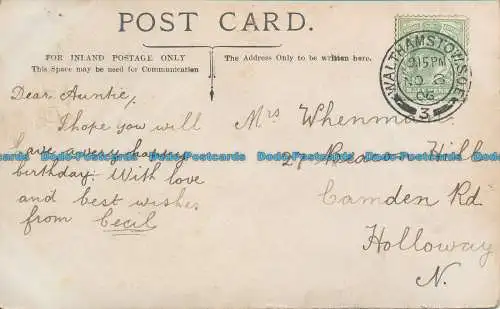 POST CARD.
FOR INLAND POSTAGE ONLY
This Space may be used for Communication
The Address Only to be written here.
WALTHAMSTOW
9.15 PM
NO 8
05
3
Dear Auntie,
I hope you will
have a very happy
birthday. With love
and best wishes
from Cecil
Mrs Whenman
27 Hill
Camden Rd
Holloway
N.
Dodo-Postcards Dodo-Postcards Dodo-Postcards Dodo-Postcards